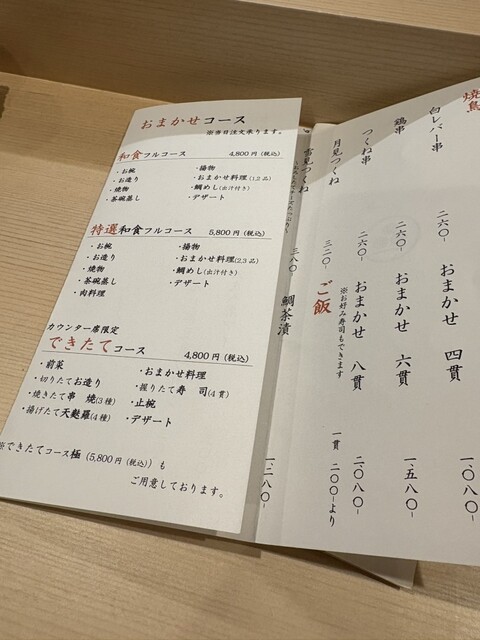 おまかせコース
※当日注文承ります。
和食フルコース 4,800円(税込)
・お椀
・お造り
・焼物
・茶碗蒸し
・揚物
・おまかせ料理(1,2品)
・鯛めし(出汁付き)
・デザート
特選和食フルコース 5,800円(税込)
・お椀
・お造り
・焼物
・茶碗蒸し
・肉料理
・揚物
・おまかせ料理(2,3品)
・鯛めし(出汁付き)
・デザート
カウンター席限定
できたてコース 4,800円(税込)
・前菜
・切りたてお造り
・焼きたて串 焼(3種)
・揚げたて天麩羅(4種)
・おまかせ料理
・握りたて寿 司(4貫)
・止椀
・デザート
※できたてコース極(5,800円(税込))も
ご用意しております。
焼鳥
白レバー串 二六〇-
鶏串 二六〇-
つくね串 二六〇-
月見つくね 三二〇-
雪見つくね 三八〇-
おまかせ 四貫 一、〇八〇-
おまかせ 六貫 一、五八〇-
おまかせ 八貫 二、〇八〇-
※お好み寿司もできます 一貫 二〇〇-より
ご飯
鯛茶漬 一、二八〇-